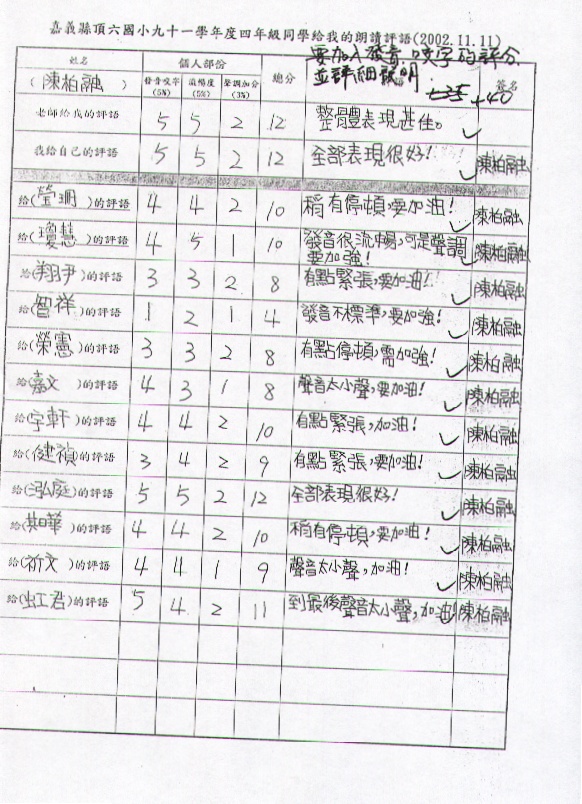 嘉義縣頂六國小九十一學年度四年級同學給我的朗讀評語(2002.11.11)
要加入發音、咬字的評分
並詳細說明
+35 +40
姓名 個人部份 總分 評語 簽名
(陳柏融) 發音咬字(5%) 流暢度(5%) 聲調加分(3%)
老師給我的評語 5 5 2 12 整體表現甚佳。
我給自己的評語 5 5 2 12 全部表現很好! 陳柏融
給(瑩珊)的評語 4 4 2 10 稍有停頓,要加油! 陳柏融
給(瓊慧)的評語 4 5 1 10 發音很流暢,可是聲調要加強! 陳柏融
給(翔伊)的評語 3 3 2 8 有點緊張,要加油! 陳柏融
給(智祥)的評語 1 2 1 4 發音不標準,要加強! 陳柏融
給(榮憲)的評語 3 3 2 8 有點停頓,需加強! 陳柏融
給(嘉文)的評語 4 3 1 8 聲音太小聲,要加油! 陳柏融
給(宇軒)的評語 4 4 2 10 有點緊張,加油! 陳柏融
給(健禎)的評語 3 4 2 9 有點緊張,要加油! 陳柏融
給(泓庭)的評語 5 5 2 12 全部表現很好! 陳柏融
給(英華)的評語 4 4 2 10 稍有停頓,要加油! 陳柏融
給(祈文)的評語 4 4 1 9 聲音太小聲,加油! 陳柏融
給(虹君)的評語 5 4 2 11 到最後聲音太小聲,加油! 陳柏融